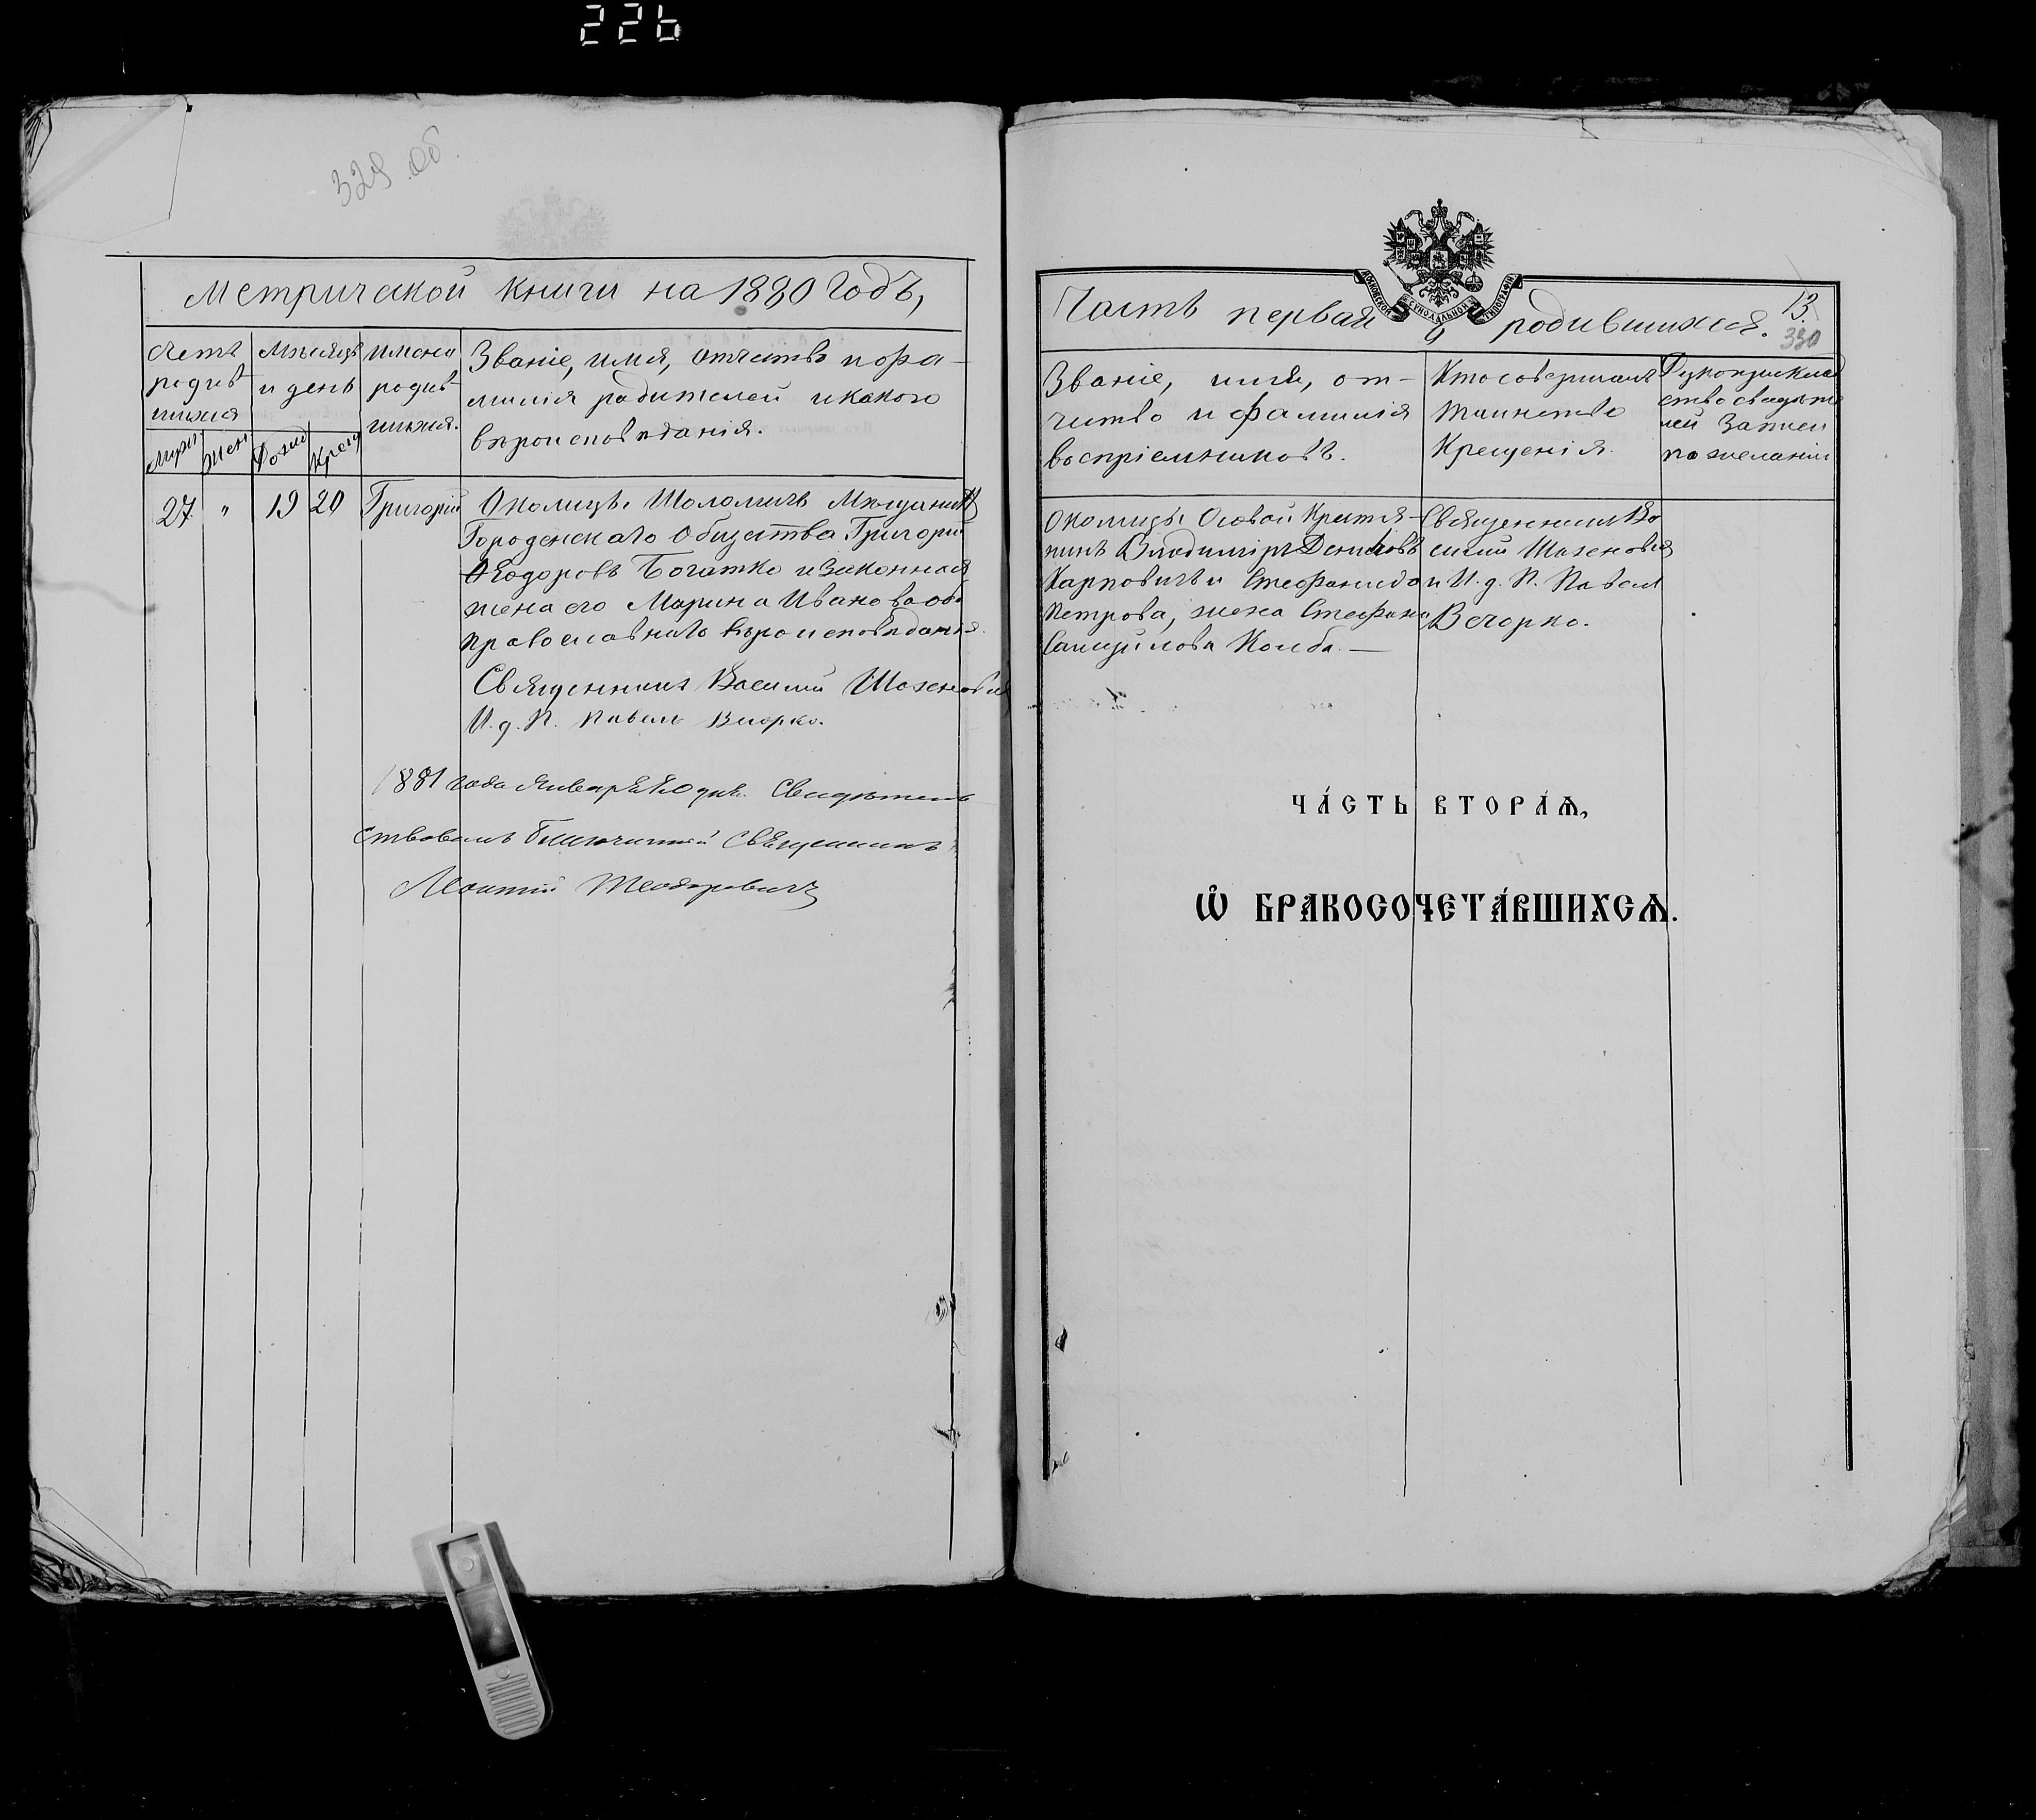 226
329 об.
Метрической книги на 1880 годъ,
Счетъ
родив
шихся
Муж
Жен
Мѣсяцъ
и день
Рожд
Крещ
Имена
родив
шихся.
Званіе, имя, отчество и фа-
милія родителей и какого
вѣроисповѣданія.
27. " 19 20 Григорій
Околицы Шоломичъ Мѣщанинъ
Городенскаго Общества Григорій
Ѳеодоровъ Богатко и законная
жена его Марина Иванова оба
православнаго вѣроисповѣданія.
Священникъ Василій
И. д. П. Павелъ Вечорко.
1881 года Января 10 дня. Свидѣтель
ствовалъ Благочинный Священникъ
МОСКОВСКОЙ СѴНОДАЛЬНОЙ ТИПОГРАФІИ
Часть первая о родившихся.
13.
330
Званіе, имя, от-
чество и фамилія
воспріемниковъ.
Кто совершалъ
таинство
Крещенія.
Рукоприклад
ство свидѣте
лей записи
по желанію
Околицы Осовой Крестья-
нинъ Владиміръ Денисовъ
Карповичъ и Стефанида
Петрова, жена Стефана
Самуилова Комба. —
Священникъ Ва
силій
и И. д. П. Павелъ
Вечорко.
ЧА́СТЬ ВТОРА́Ѧ,
Ѡ҆ БРАКОСОЧЕТА́ВШИХСѦ.